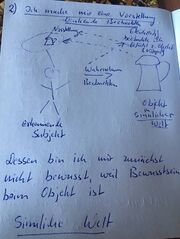 2) Ich mache mir eine Vorstellung
Vorstellung
Wahrnehmen
Beobachten
Objekt
Sinnlicher
Welt
erkennendes
Subjekt
dessen bin ich mir zunächst
nicht bewusst, weil Bewusstsein
beim Objekt ist
Sinnliche Welt